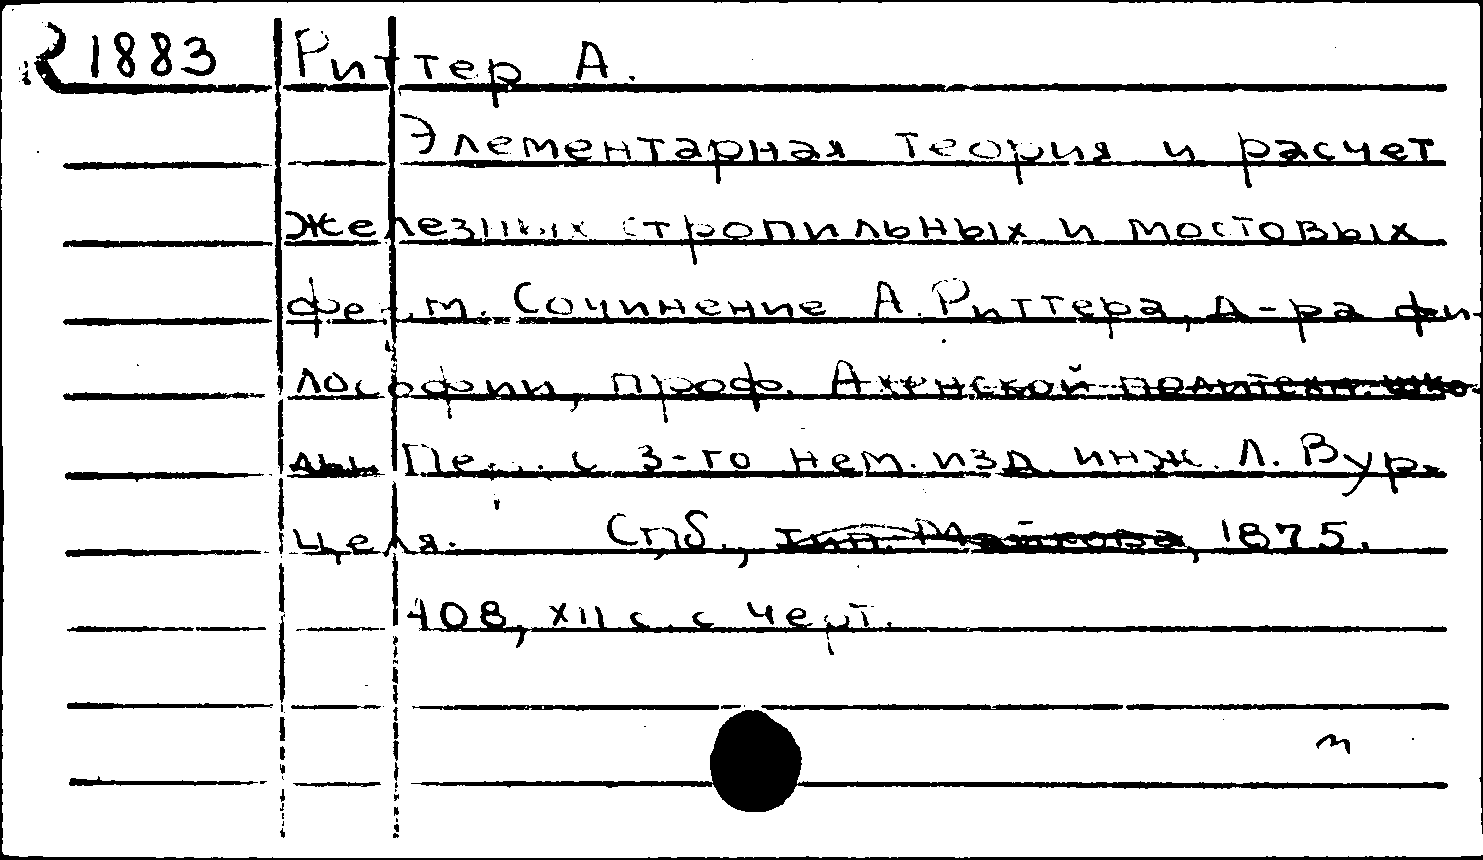 R 1883 Риттер А.
Элементарная теория и расчет
железных стропильных и мостовых
ферм. Сочинение А. Риттера, д-ра фи-
лософии, проф. Ахенской политехн. шко-
лы. Пер. с 3-го нем. изд. инж. Л. Вур-
целя. Спб., тип. Майкова, 1875.
408, XII с. с черт.